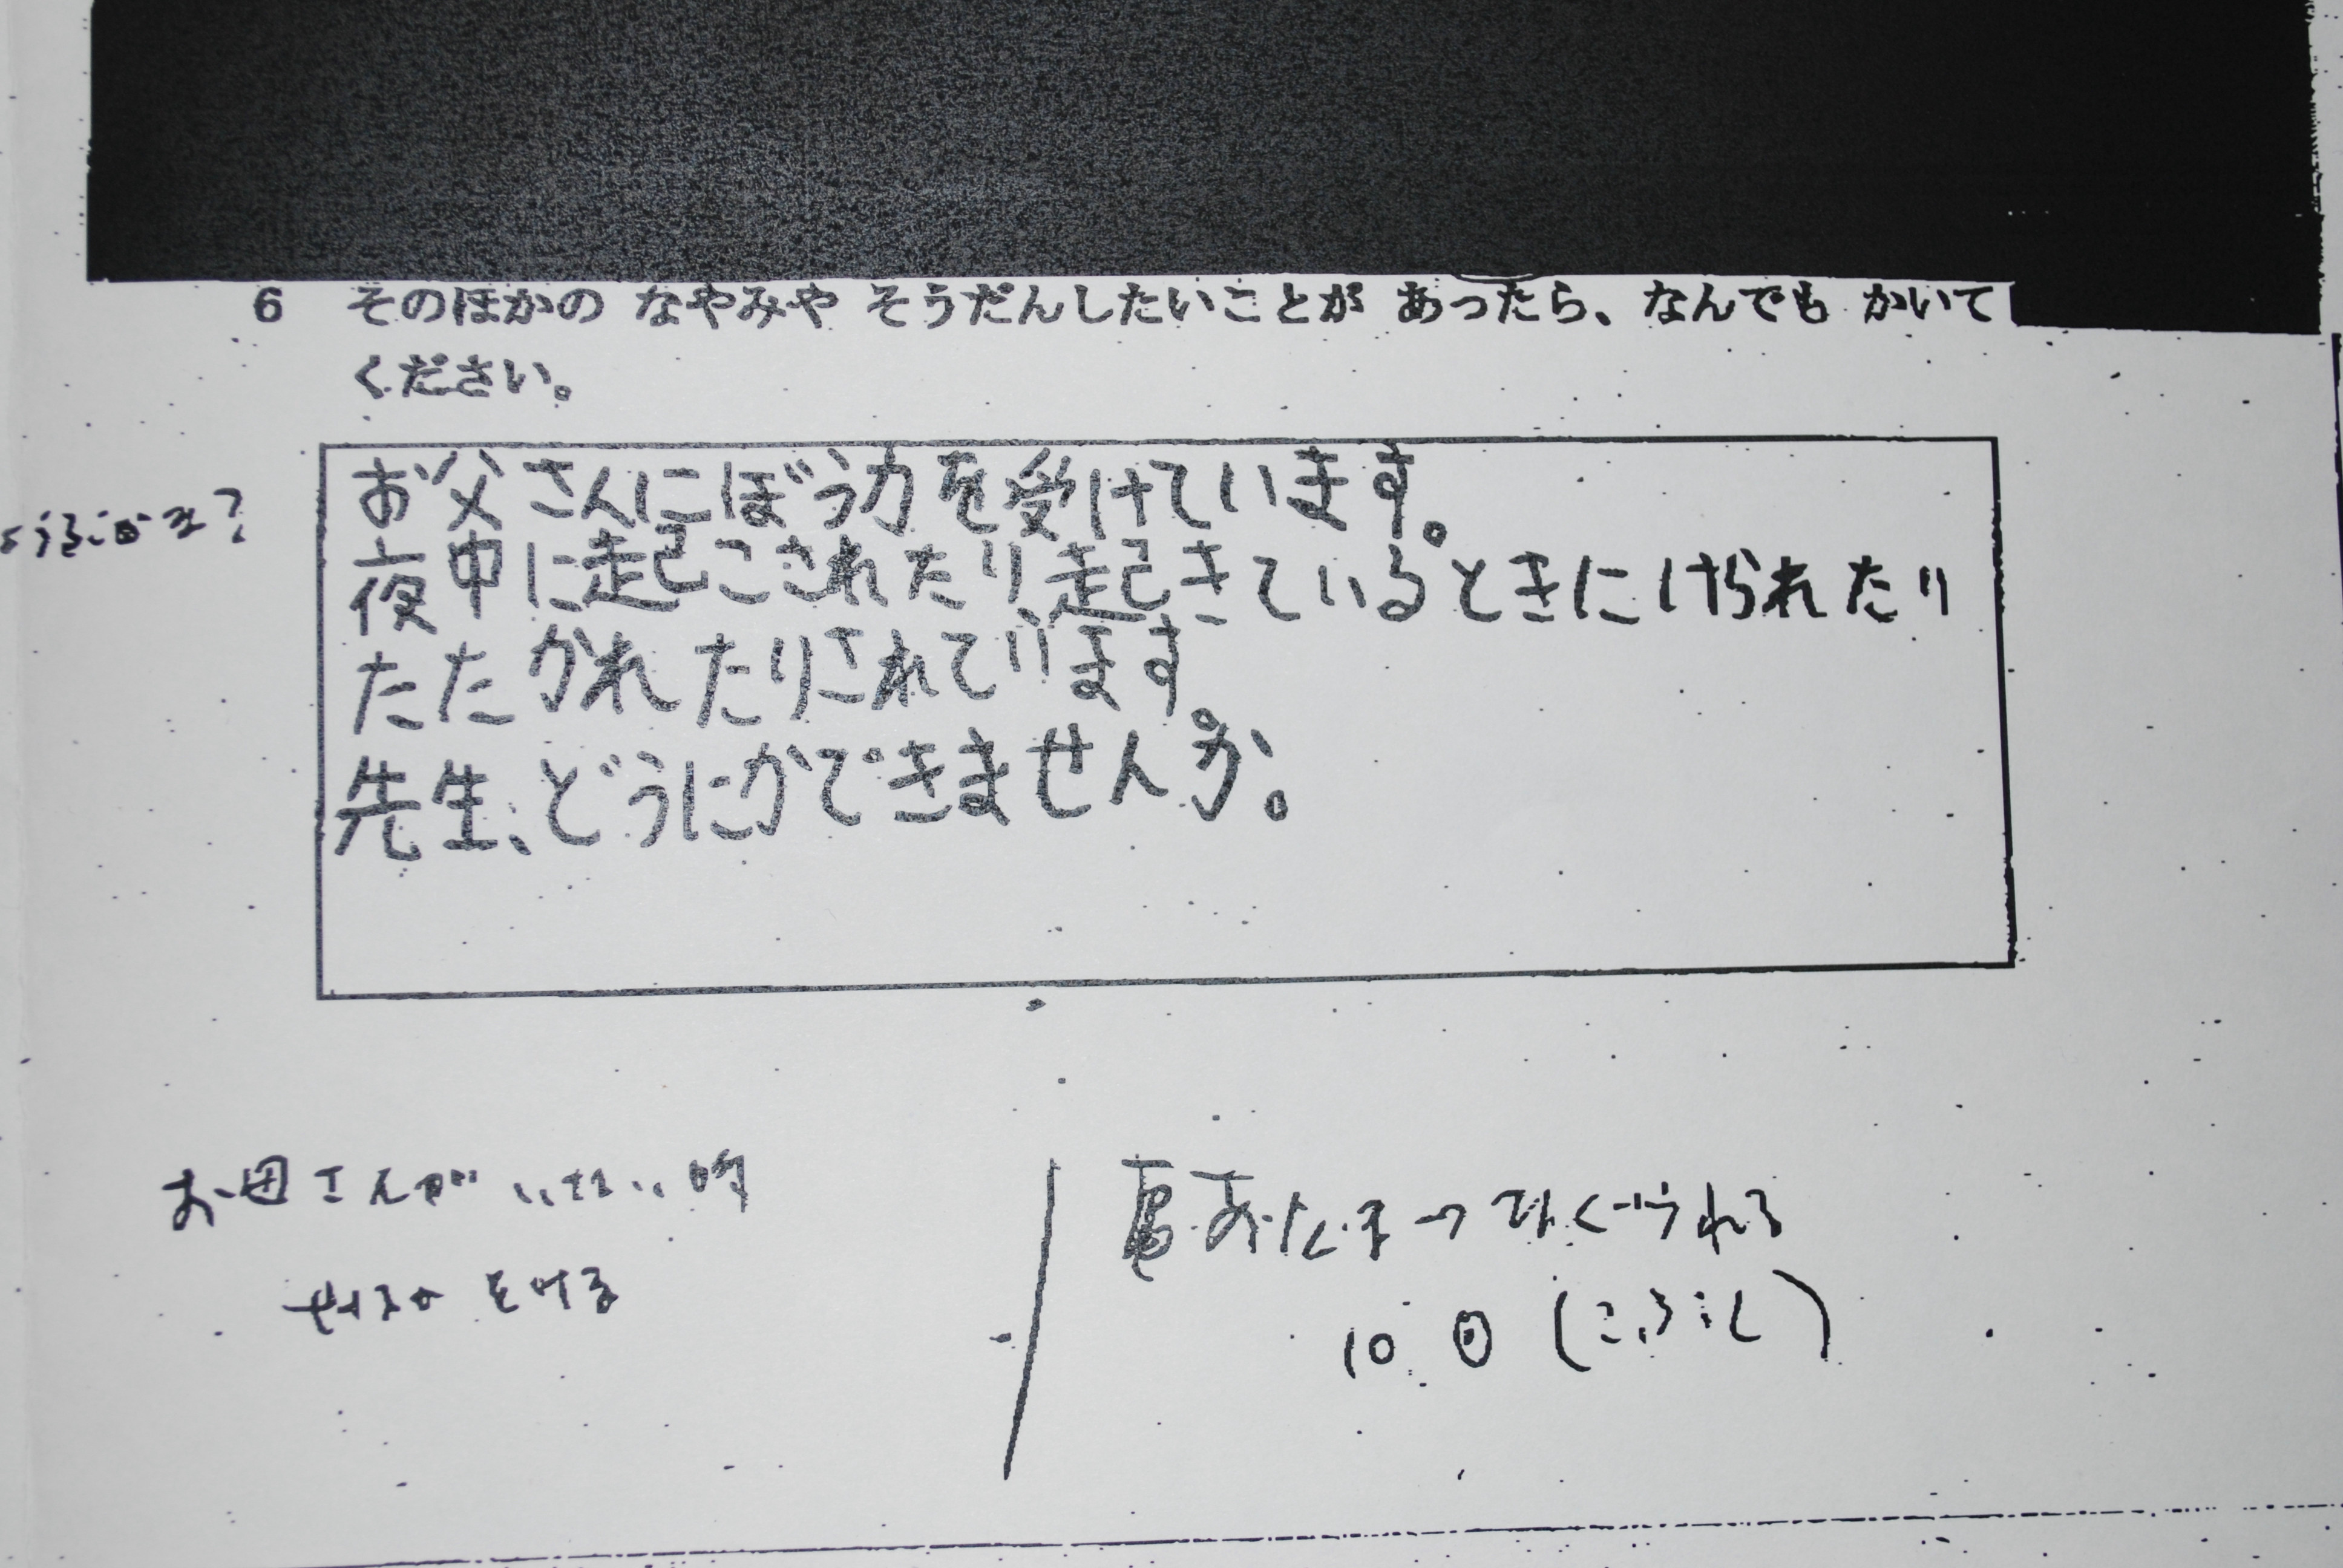 6 そのほかの なやみや そうだんしたいことが あったら、なんでも かいて
ください。
お父さんにぼう力を受けています。
夜中に起こされたり、起きているときにけられたり
たたかれたりされています。
先生、どうにかできませんか。
お母さんがいない時
あたまっ なぐられる
10回 (こぶし)